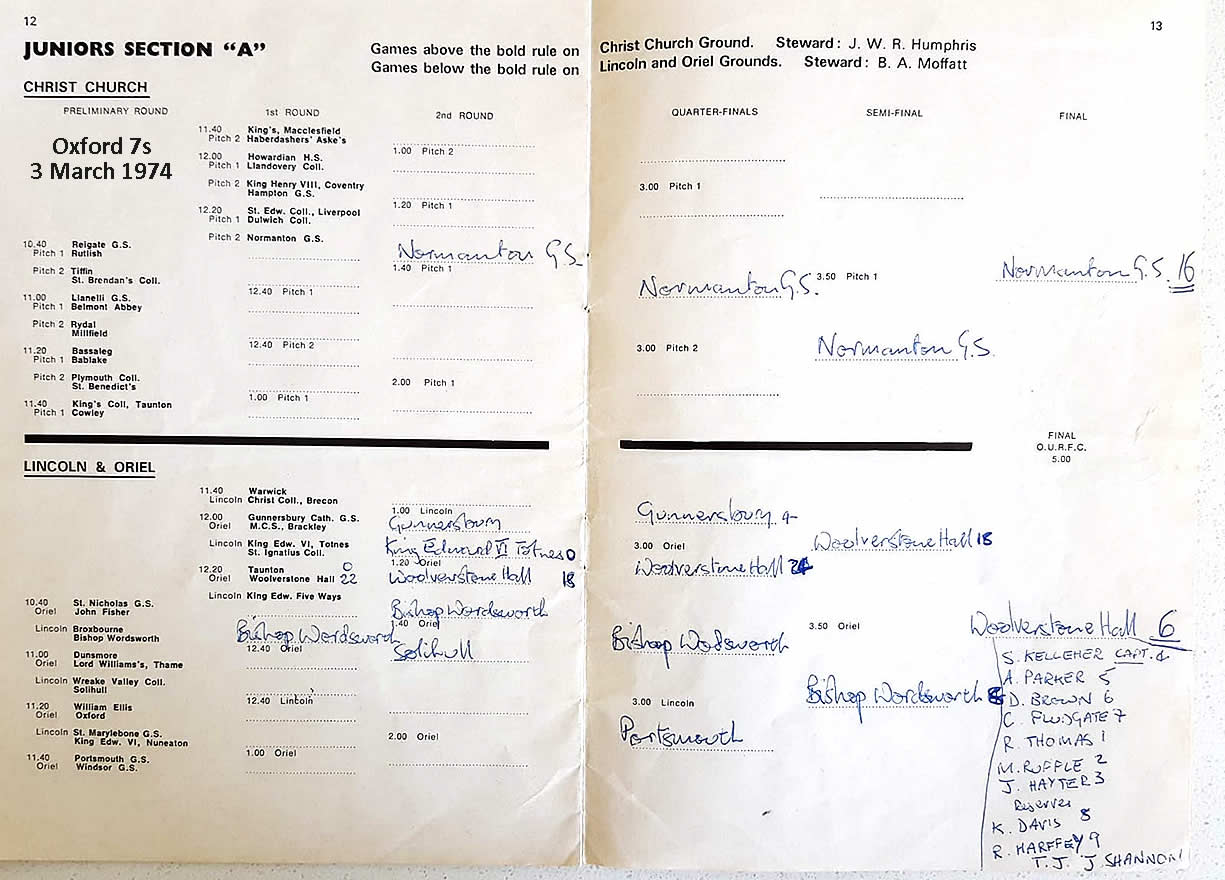 12
JUNIORS SECTION "A"
Games above the bold rule on
Games below the bold rule on
CHRIST CHURCH
PRELIMINARY ROUND
1st ROUND
2nd ROUND
Oxford 7s
3 March 1974
11.40 King's, Macclesfield
Pitch 2 Haberdashers' Aske's
1.00 Pitch 2
12.00 Howardian H.S.
Pitch 1 Llandovery Coll.
Pitch 2 King Henry VIII, Coventry
Hampton G.S.
1.20 Pitch 1
12.20 St. Edw. Coll., Liverpool
Pitch 1 Dulwich Coll.
Pitch 2 Normanton G.S.
Normanton G.S.
10.40 Reigate G.S.
Pitch 1 Rutlish
1.40 Pitch 1
Pitch 2 Tiffin
St. Brendan's Coll.
12.40 Pitch 1
11.00 Llanelli G.S.
Pitch 1 Belmont Abbey
Pitch 2 Rydal
Millfield
12.40 Pitch 2
11.20 Bassaleg
Pitch 1 Bablake
Pitch 2 Plymouth Coll.
St. Benedict's
2.00 Pitch 1
1.00 Pitch 1
11.40 King's Coll, Taunton
Pitch 1 Cowley
LINCOLN & ORIEL
11.40 Warwick
Lincoln Christ Coll., Brecon
1.00 Lincoln
12.00 Gunnersbury Cath. G.S.
Oriel M.C.S., Brackley
Gunnersbury
Lincoln King Edw. VI, Totnes
St. Ignatius Coll.
King Edward VI Totnes 0
1.20 Oriel
12.20 Taunton 0
Oriel Woolverstone Hall 22
Woolverstone Hall 18
Lincoln King Edw. Five Ways
Bishop Wordsworth
10.40 St. Nicholas G.S.
Oriel John Fisher
1.40 Oriel
Lincoln Broxbourne
Bishop Wordsworth
Bishop Wordsworth
12.40 Oriel
Solihull
11.00 Dunsmore
Oriel Lord Williams's, Thame
Lincoln Wreake Valley Coll.
Solihull
12.40 Lincoln
11.20 William Ellis
Oriel Oxford
Lincoln St. Marylebone G.S.
King Edw. VI, Nuneaton
2.00 Oriel
1.00 Oriel
11.40 Portsmouth G.S.
Oriel Windsor G.S.
13
Christ Church Ground. Steward: J. W. R. Humphris
Lincoln and Oriel Grounds. Steward: B. A. Moffatt
QUARTER-FINALS
SEMI-FINAL
FINAL
3.00 Pitch 1
Normanton G.S.
3.50 Pitch 1
Normanton G.S. 16
3.00 Pitch 2
Normanton G.S.
FINAL
O.U.R.F.C.
5.00
Gunnersbury
3.00 Oriel
Woolverstone Hall 18
Woolverstone Hall
3.50 Oriel
Bishop Wodsworth
Woolverstone Hall 6
3.00 Lincoln
Bishop Wordsworth
Portsmouth
S. KELLEHER CAPT. 4
A. PARKER 5
D. BROWN 6
C. FLUDGATE 7
R. THOMAS 1
M. RUFFLE 2
J. HAYTER 3
Reserves
K. DAVIS 8
R. HARFFEY 9
T.J. J SHANNON